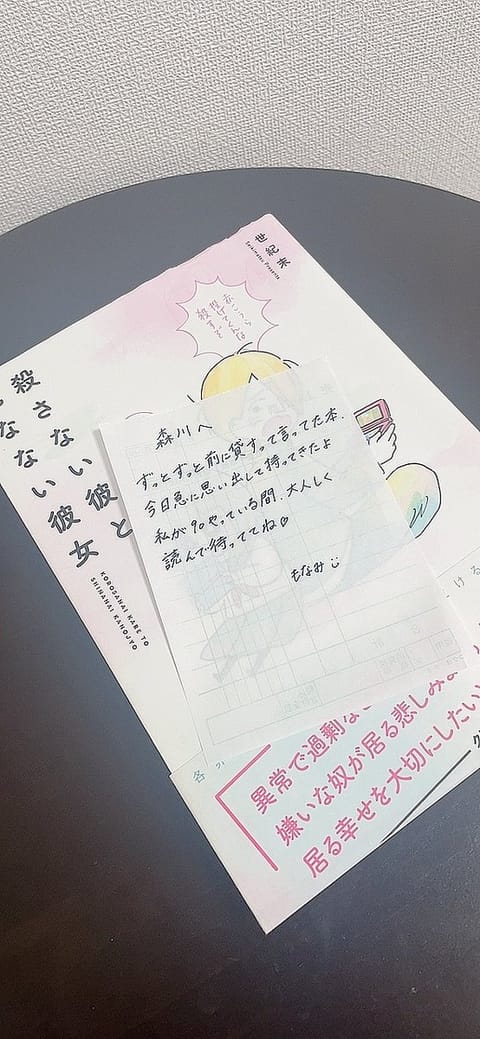 世紀末
Seikimatsu Presents
殺すぞ
殺さない彼と
死なない彼女
KOROSANAI KARE TO
SHINANAI KANOJYO
森川へ
ずっとずっと前に貸すって言ってた本、
今日急に思い出して持ってきたよ
私が90やっている間、大人しく
読んで待っててね
もなみ
異常で過剰な
嫌いな奴が居る悲しみよ
居る幸せを大切にしたい